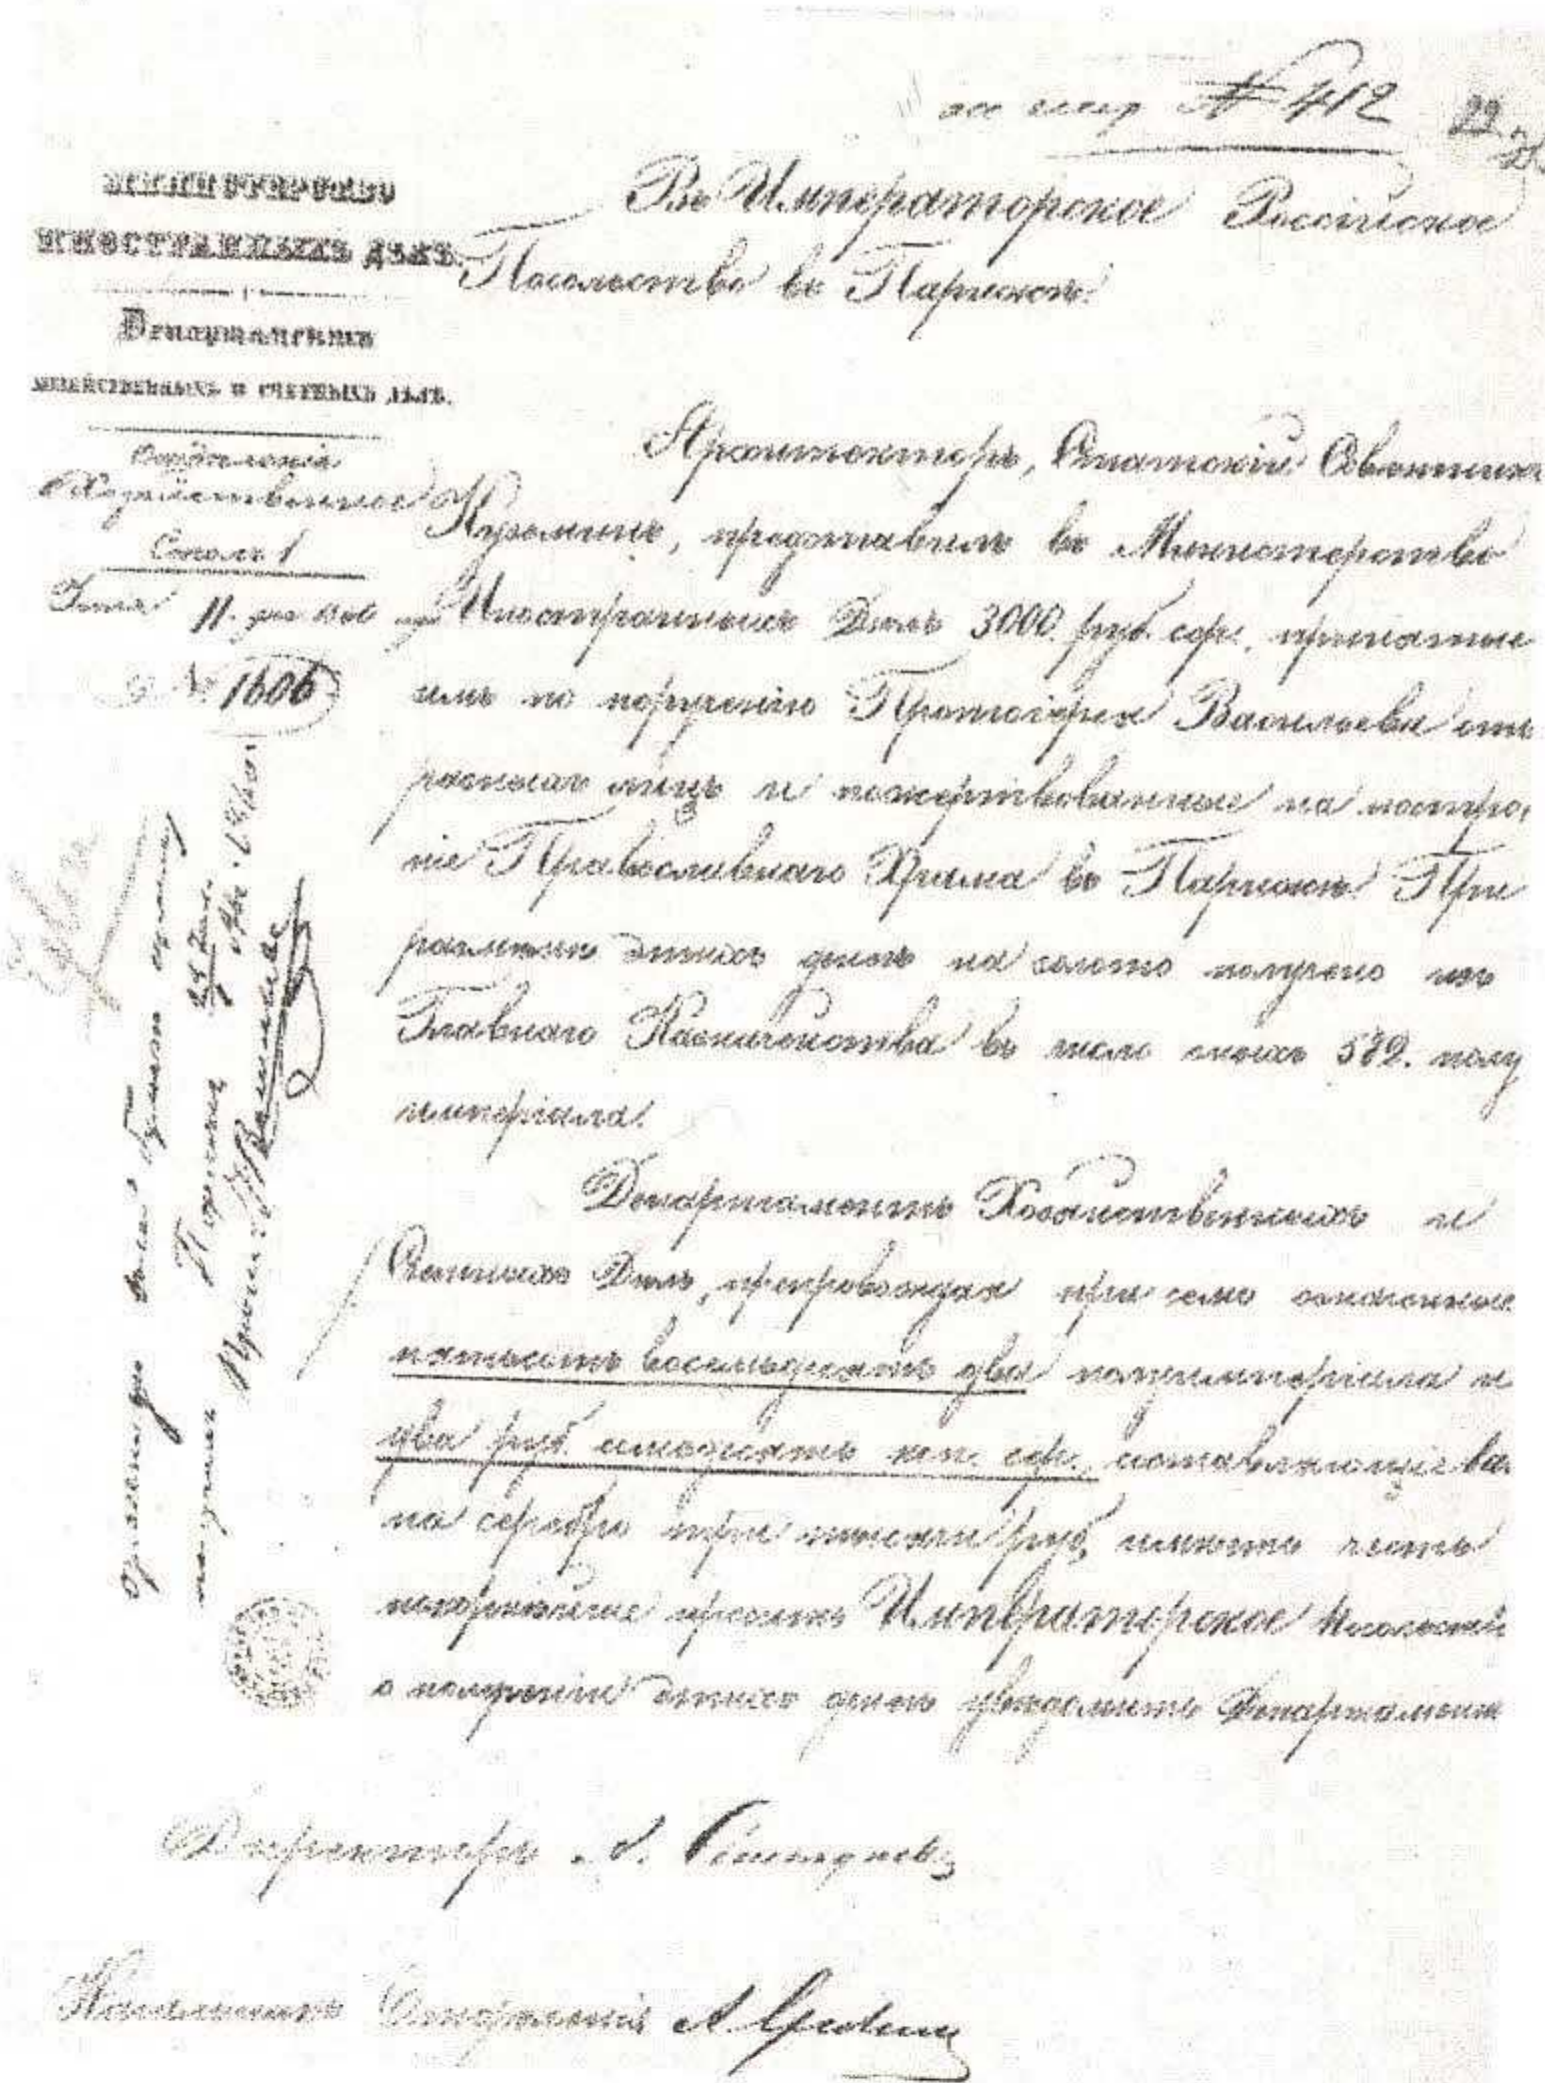 № 412
МИНИСТЕРСТВО
ИНОСТРАННЫХЪ ДѢЛЪ.
Департаментъ
ХОЗЯЙСТВЕННЫХЪ И СЧЕТНЫХЪ ДѢЛЪ.
Отдѣленіе
Хозяйственное
Столъ 1
№ 1606
Въ Императорское Россійское
Посольство въ Парижѣ.
Архитекторъ, Статскій Совѣтникъ
Кузьминъ, представилъ въ Министерство
Иностранныхъ Дѣлъ 3000 руб. сер., принятые
имъ по порученію Протоіерея Васильева отъ
разныхъ лицъ и пожертвованные на постро
ніе Православнаго Храма въ Парижѣ. При
размѣнѣ этихъ денегъ на золото получено изъ
Главнаго Казначейства въ число оныхъ 582. полу
имперіала.
Департаментъ Хозяйственныхъ и
Счетныхъ Дѣлъ, препровождая при семъ означенные
пятьсотъ восемьдесятъ два полуимперіала и
два руб. семьдесятъ коп. сер., составляющіе
на серебро три тысячи руб., имѣетъ честь
покорнѣйше просить Императорское Посольство
о полученіи этихъ денегъ увѣдомить Департаментъ
Директоръ
Начальникъ Отдѣленія